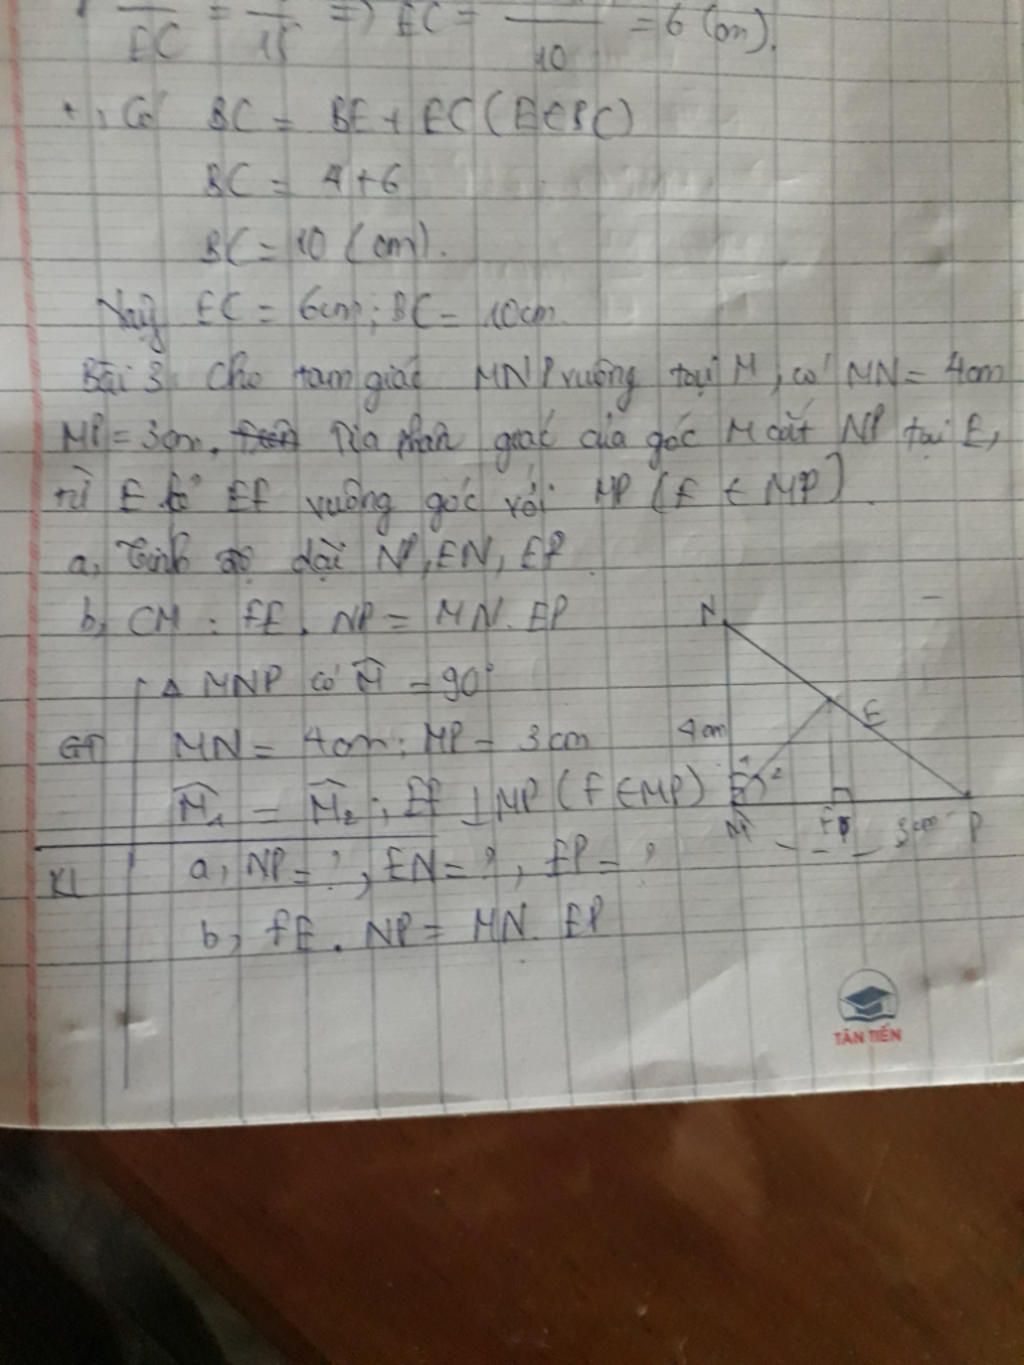 EC = 15 => EC = 10 = 6 (cm).
+, Có BC = BE + EC (E∈BC)
BC = 4+6
BC = 10 (cm).
Vậy EC = 6cm; BC = 10cm
Bài 3. Cho tam giác MNP vuông tại M, có MN = 4cm
MP = 3cm. Tia phân giác của góc M cắt NP tại E,
từ E kẻ EF vuông góc với MP (F ∈ MP).
a, Tính độ dài NP, EN, EP
b, CM : FE . NP = MN . EP
Δ MNP có M̂ = 90°
GT MN = 4cm; MP = 3cm
M̂₁ = M̂₂ ; EF ⊥ MP (F ∈ MP)
KL a, NP = ?, EN = ?, EP = ?
b, FE . NP = MN . EP
N
E
4cm
1 2
M F 3cm P
TÂN TIẾN